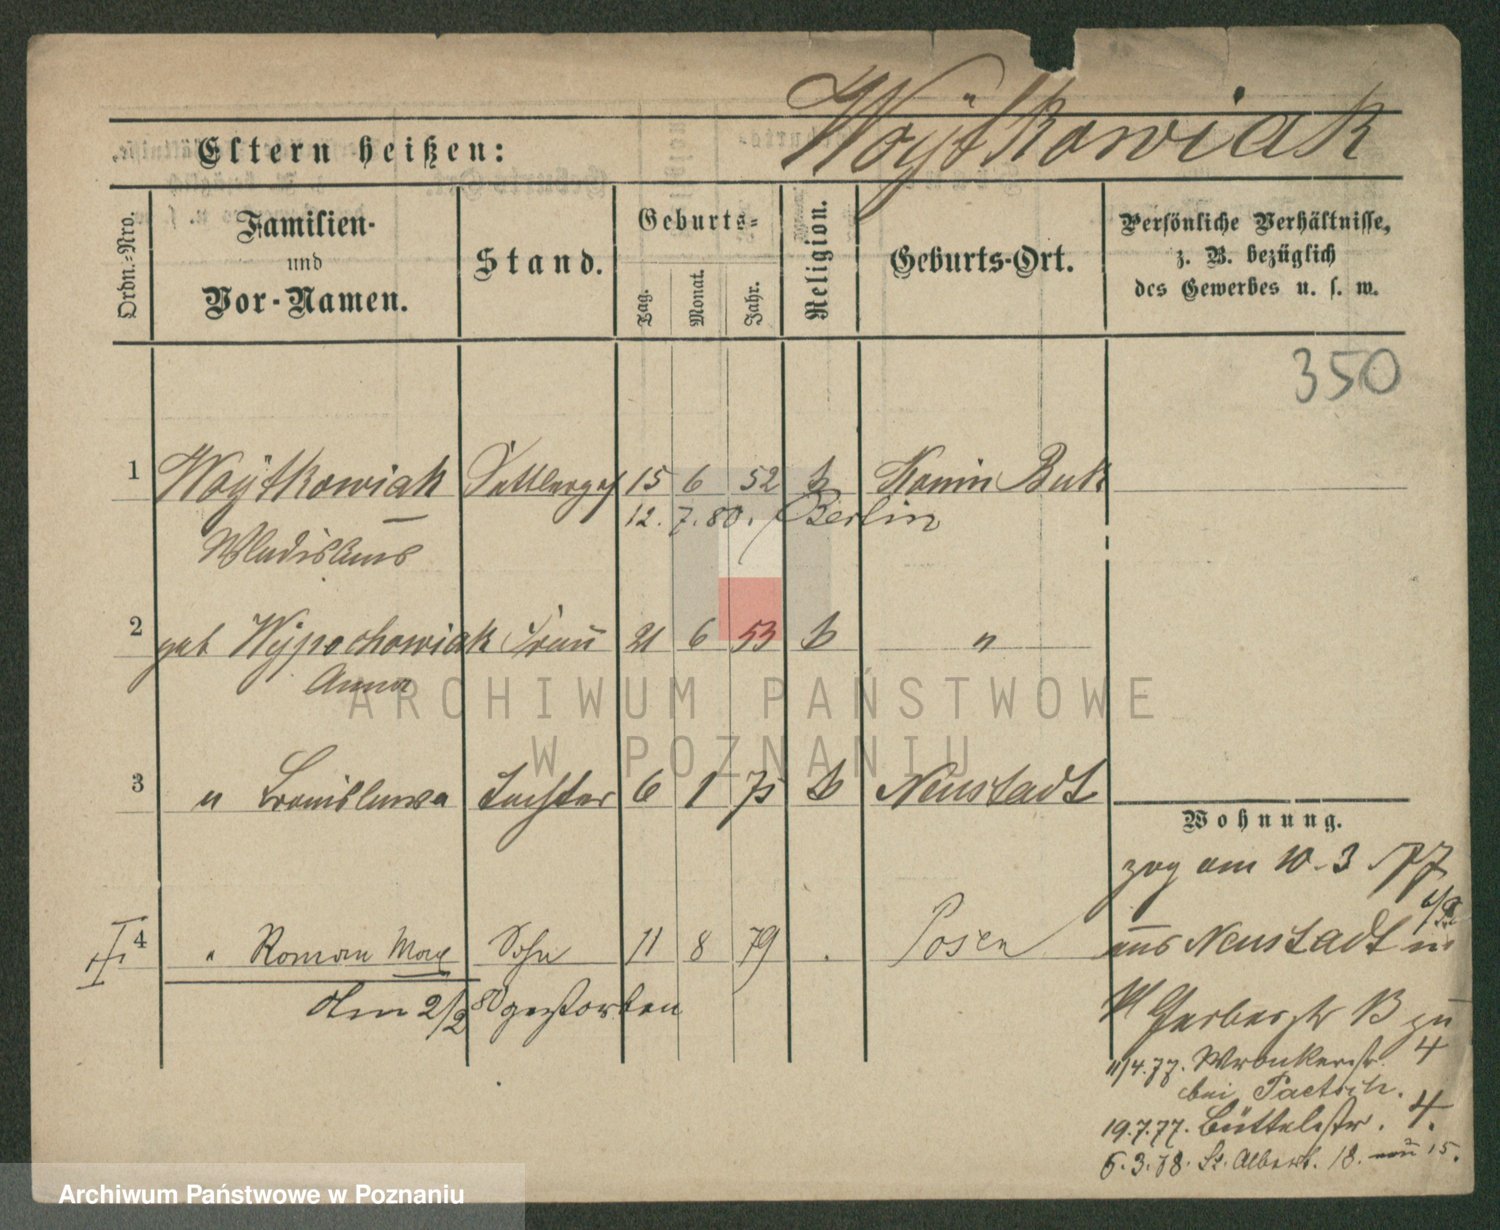 Woÿtkowiak
Eltern heißen:
Ordn.-Nro.
Familien-
und
Vor-Namen.
Stand.
Geburts-
Tag.
Monat.
Jahr.
Religion.
Geburts-Ort.
Persönliche Verhältnisse,
z. B. bezüglich
des Gewerbes u. s. w.
350
1 Woÿtkowiak 15 6 52 Konin Buk
12. 7. 80. Berlin
Wladislaus
2 geb Wypochowiak Frau 21 6 53 "
Anna
ARCHIWUM PAŃSTWOWE
W POZNANIU
3 " Bronislawa Tochter 6 1 75 Neustadt
Wohnung.
zog am 10. 3. 77
4 " Roman Max Sohn 11 8 79 . Posen
aus Neustadt
Am 2/2 80 gestorben
Gerberstr
11/4.77. Wronkerstr. 4
bei
19.7.77. Büttelstr. 4.
5.3.78. St. Adalbert. 18. 15.
Archiwum Państwowe w Poznaniu